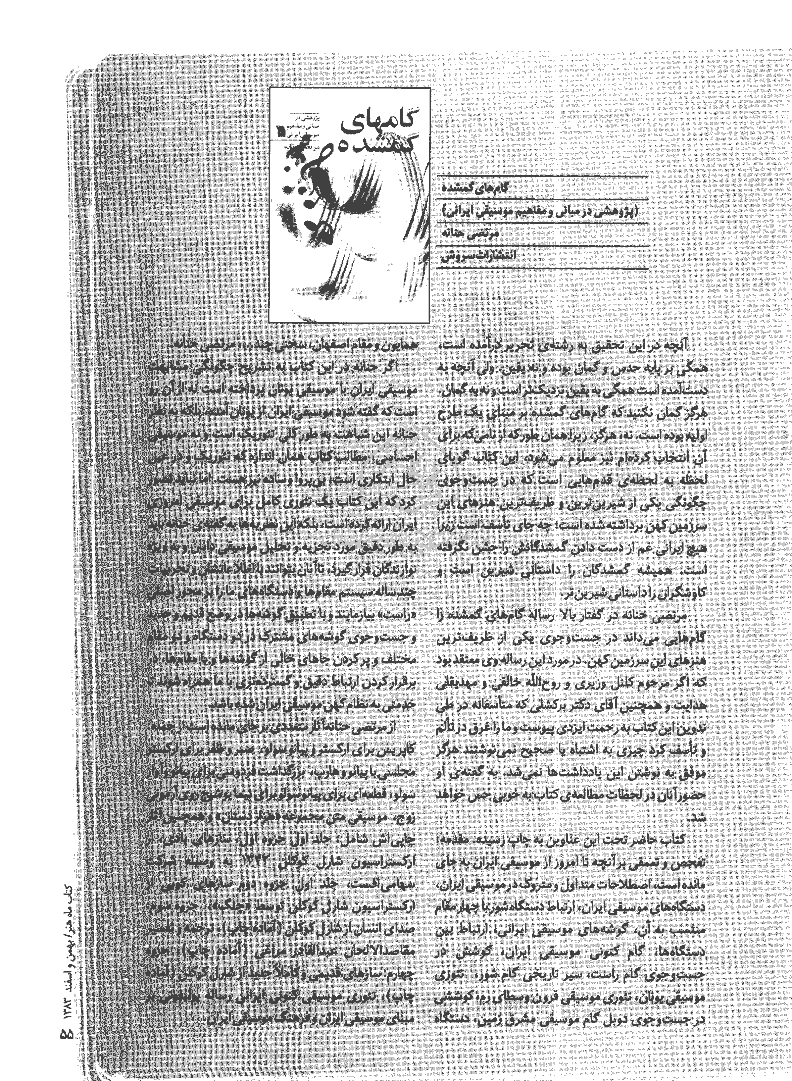 گامهای
گمشده
پژوهشی در
گام‌های گمشده
(پژوهشی در مبانی و مفاهیم موسیقی ایرانی)
مرتضی حنانه
انتشارات سروش
آنچه در این تحقیق به رشته‌ی تحریر درآمده است،
همگی بر پایه حدس و گمان بوده و نه یقین. ولی آنچه به
دست آمده است همگی به یقین نزدیک‌تر است و نه به گمان.
هرگز گمان نکنید که گام‌های گمشده بر مبنای یک طرح
اولیه بوده است. نه، هرگز، زیرا همان طور که از نامی که برای
آن انتخاب کرده‌ام نیز معلوم می‌شود، این کتاب گویای
لحظه به لحظه‌ی قدم‌هایی است که در جست‌وجوی
چگونگی یکی از شیرین‌ترین و ظریف‌ترین هنرهای این
سرزمین کهن برداشته شده است؛ چه جای تأسف است زیرا
هیچ ایرانی غم از دست دادن گمشدگانش را جشن نگرفته
است. همیشه گمشدگان را داستانی شیرین است و
کاوشگران را داستانی شیرین‌تر.
مرتضی حنانه در گفتار بالا رساله گام‌های گمشده را
گام‌هایی می‌داند در جست‌وجوی یکی از ظریف‌ترین
هنرهای این سرزمین کهن. در مورد این رساله وی معتقد بود
که اگر مرحوم کلنل وزیری و روح‌الله خالقی و مهدیقلی
هدایت و همچنین آقای دکتر برکشلی که متأسفانه در طی
تدوین این کتاب به رحمت ایزدی پیوست و ما را غرق در تألم
و تأسف کرد چیزی به اشتباه یا صحیح نمی‌نوشتند هرگز
موفق به نوشتن این یادداشت‌ها نمی‌شد. به گفته‌ی او
حضور آنان در لحظات مطالعه‌ی کتاب به خوبی حس خواهد
شد.
کتاب حاضر تحت این عناوین به چاپ رسیده: مقدمه؛
تفحص و تعمقی بر آنچه تا امروز از موسیقی ایران به جای
مانده است، اصطلاحات متداول و متروک در موسیقی ایران،
دستگاه‌های موسیقی ایران، ارتباط دستگاه شور با چهار مقام
منتسب به آن، گوشه‌های موسیقی ایرانی، ارتباط بین
دستگاه‌ها، گام کنونی موسیقی ایران، کوشش در
جست‌وجوی گام راست، سیر تاریخی گام شور، تئوری
موسیقی یونان، تئوری موسیقی قرون وسطای رم، کوششی
در جست‌وجوی دوبل گام موسیقی مشرق زمین، دستگاه
همایون و مقام اصفهان، سخنی چند در مرتضی حنانه.
اگر حنانه در این کتاب به تشریح چگونگی مشابهت
موسیقی ایران با موسیقی یونان پرداخته است نه از آن رو
است که گفته شود موسیقی ایران از یونان آمده، بلکه به نظر
حنانه این شباهت به طور کلی تئوریک است و نه موسیقی
احساسی. مطالب کتاب همان اندازه که تئوریک و در عین
حال ابتکاری است، بی‌پروا و ساده نیز هست. اما نباید تصور
کرد که این کتاب یک تئوری کامل برای موسیقی امروزی
ایران ارائه کرده است، بلکه این نظریه‌ها به گفته‌ی حنانه باید
به طور دقیق مورد تجزیه و تحلیل موسیقی دانان و به ویژه
نوازندگان قرار گیرد، تا آنان بتوانند با اطلاعاتشان و تجربیات
چند ساله سیستم مقام‌ها و دستگاه‌های ما را بر محور اصلی
«راست» بیازمایند و با تطبیق گوشه‌ها در وضع قدیم و جدید
و جست‌وجوی گوشه‌های مشترک در دو دستگاه و دو مقام
مختلف و پر کردن جاهای خالی از گوشه‌ها و یا مقام‌ها، در
برقرار کردن ارتباط دقیق و گسترده‌تری با ما همراه شوند تا
خدمتی به نظام کهن موسیقی ایران شده باشد.
از مرتضی حنانه آثار متعددی بر جای مانده است از جمله:
کاپریس برای ارکستر و پیانو سولو،
مجلسی با پیانو و هارپ، بزرگداشت فردوسی برای پیانو و آواز
سولو، قطعه‌ای برای پیانو سولو برای
زوج، موسیقی متن مجموعه «هزاردستان» و همچنین آثار
چاپی‌اش شامل: جلد اول جزوه اول، سازهای بادی، از
ارکستراسیون شارل کوکلن ۱۳۴۳ به وسیله شرکت
سهامی افست، جلد اول جزوه دوم سازهای کوبی از
ارکستراسیون شارل کوکلن توسط «چنگ»، جزوه سوم:
صدای انسان از شارل کوکلن (آماده چاپ)، ترجمه و تفسیر
مقاصدالالحان عبدالقادر مراغی (آماده چاپ)، جزوه
چهارم: سازهای قدیمی و کاملاً جدید از شارل کوکلن (آماده
چاپ)، تئوری موسیقی کنونی ایرانی رساله
مبنای موسیقی ایران و فرهنگ موسیقی ایران.
کتاب ماه هنر/ بهمن و اسفند ۱۳۸۳